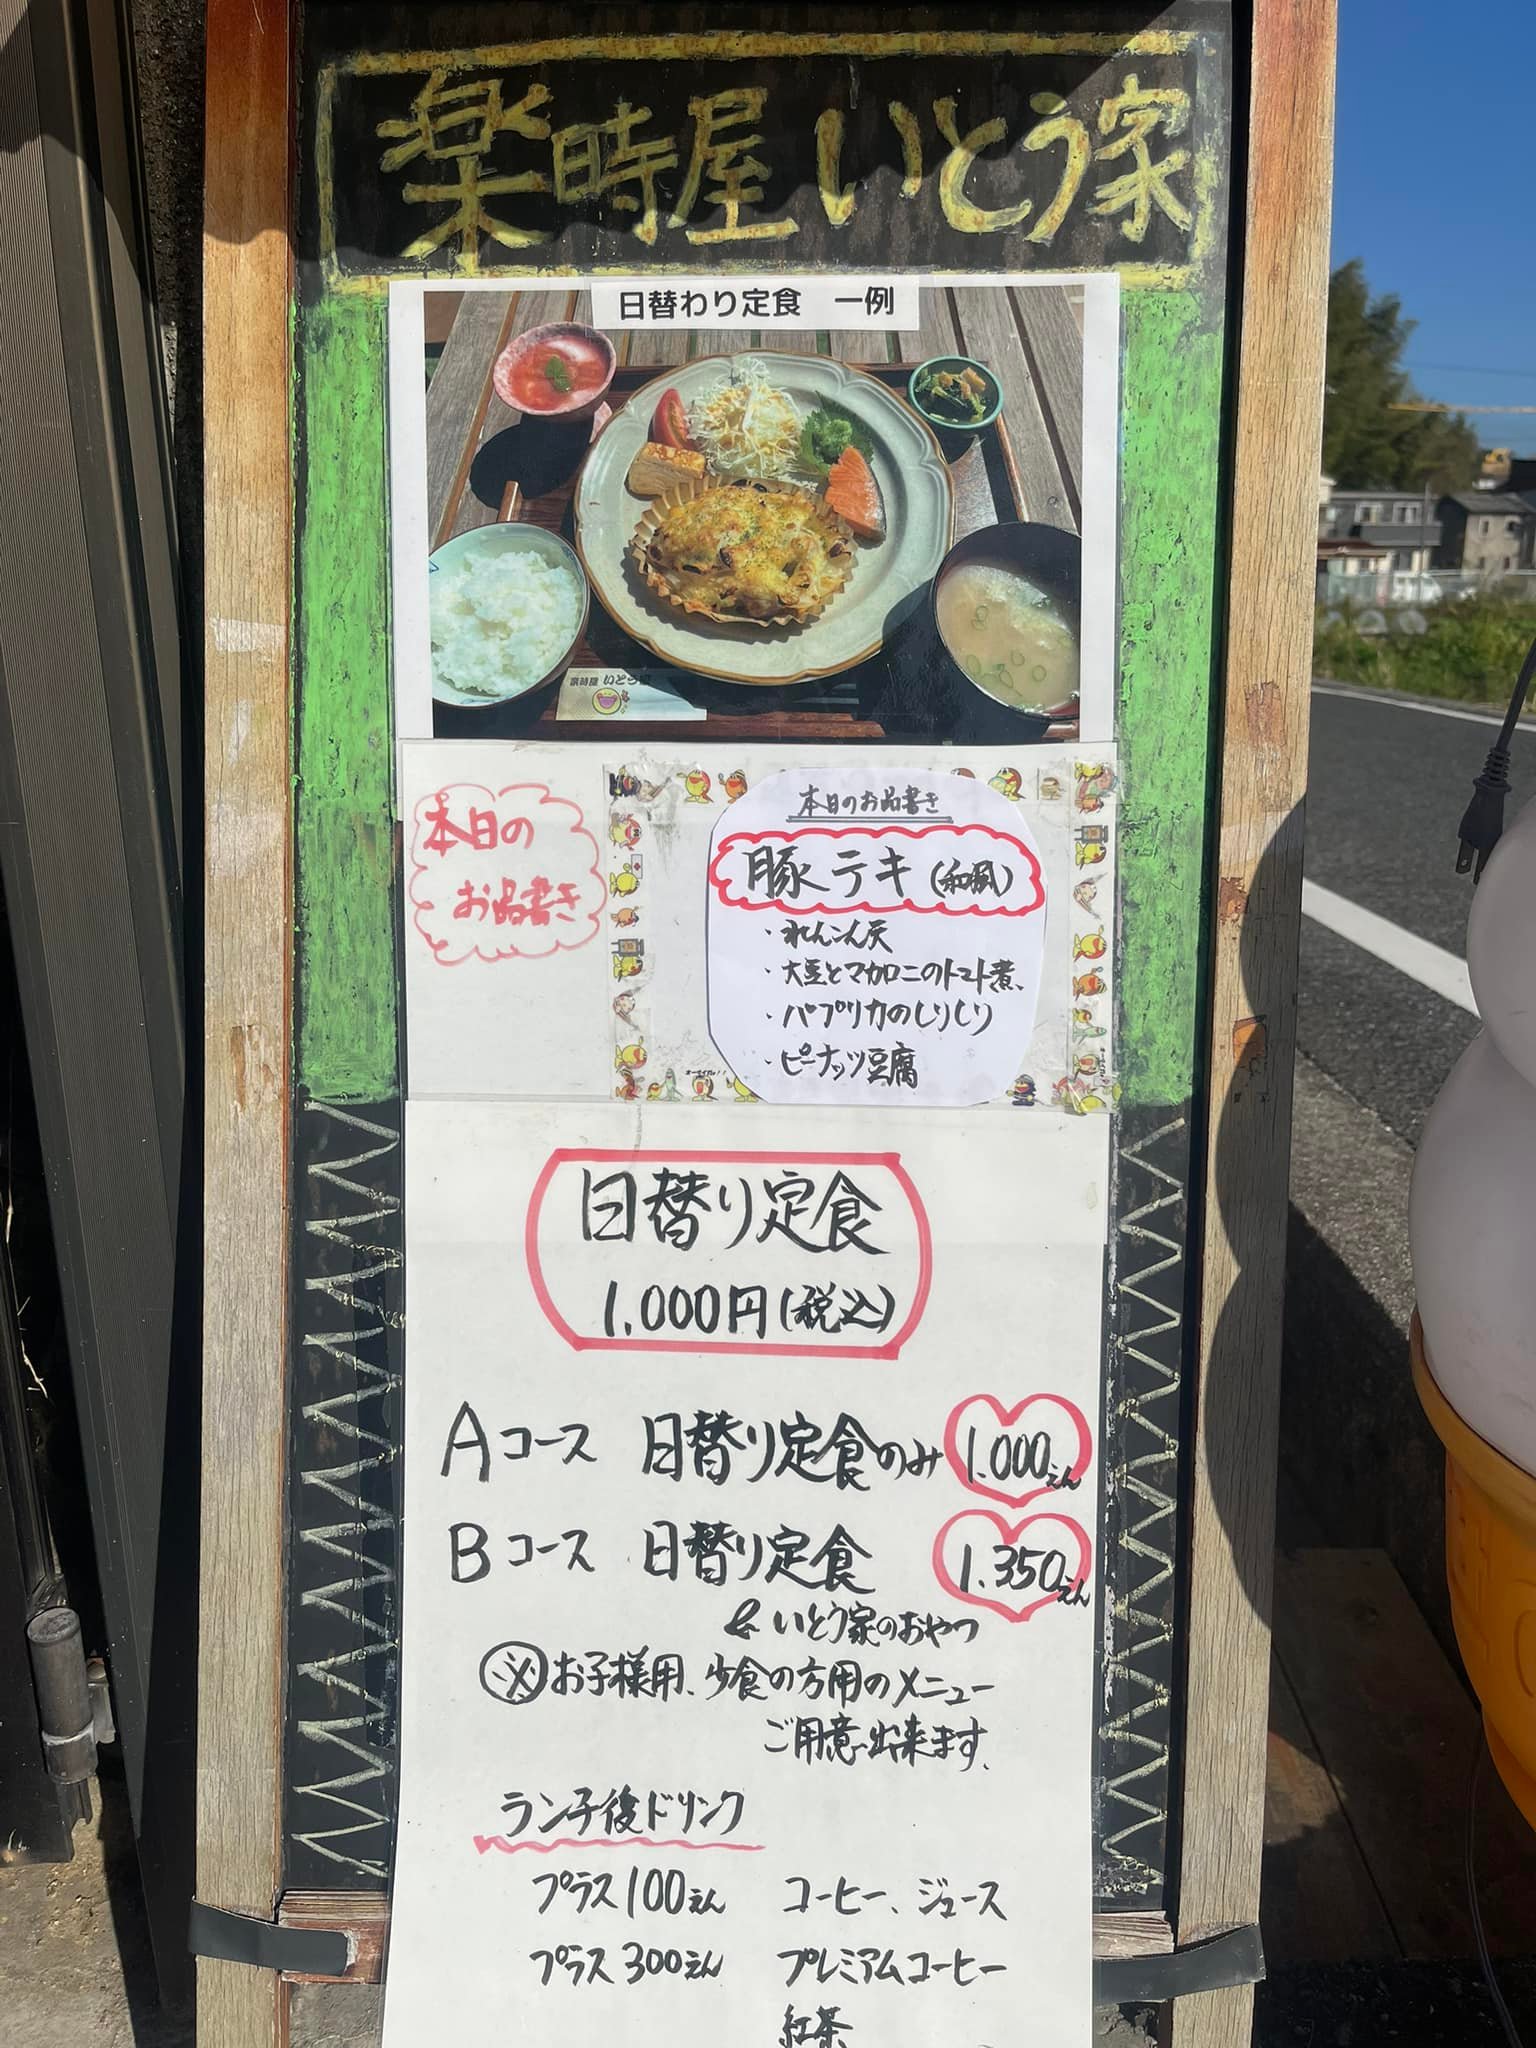 楽時屋 いとう家
日替わり定食 一例
楽時屋 いとう家
本日の
お品書き
本日のお品書き
豚テキ(和風)
・れんこん天
・大豆とマカロニのトマト煮、
・パプリカのしりしり
・ピーナッツ豆腐
日替り定食
1.000円(税込)
Aコース 日替り定食のみ 1.000えん
Bコース 日替り定食 1.350えん
& いとう家のおやつ
※お子様用、少食の方用のメニュー
ご用意出来ます、
ランチ後ドリンク
プラス100えん コーヒー、ジュース
プラス300えん プレミアムコーヒー
紅茶